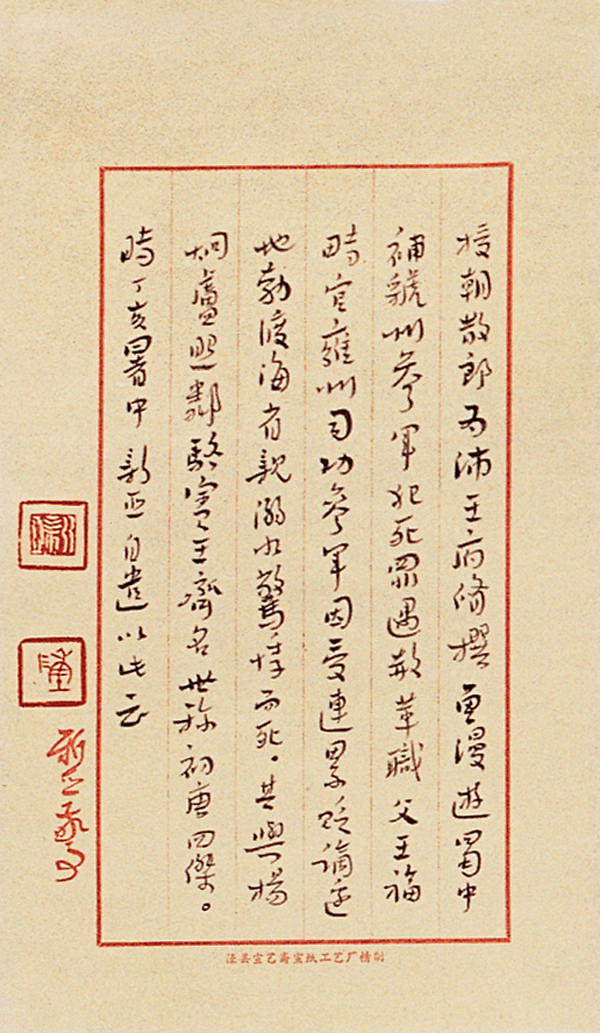 授朝散郎为沛王府修撰曾漫遊蜀中
補虢州參軍犯死罪遇赦革職父王福
時官雍州司功參軍因受連累貶謫邊
地勃渡海省親溺水驚悸而死。其與楊
炯盧照鄰駱賓王齊名世称初唐四傑。
時丁亥暑中新亚自遣以此云
泾县宣艺斋宣纸工艺厂精制